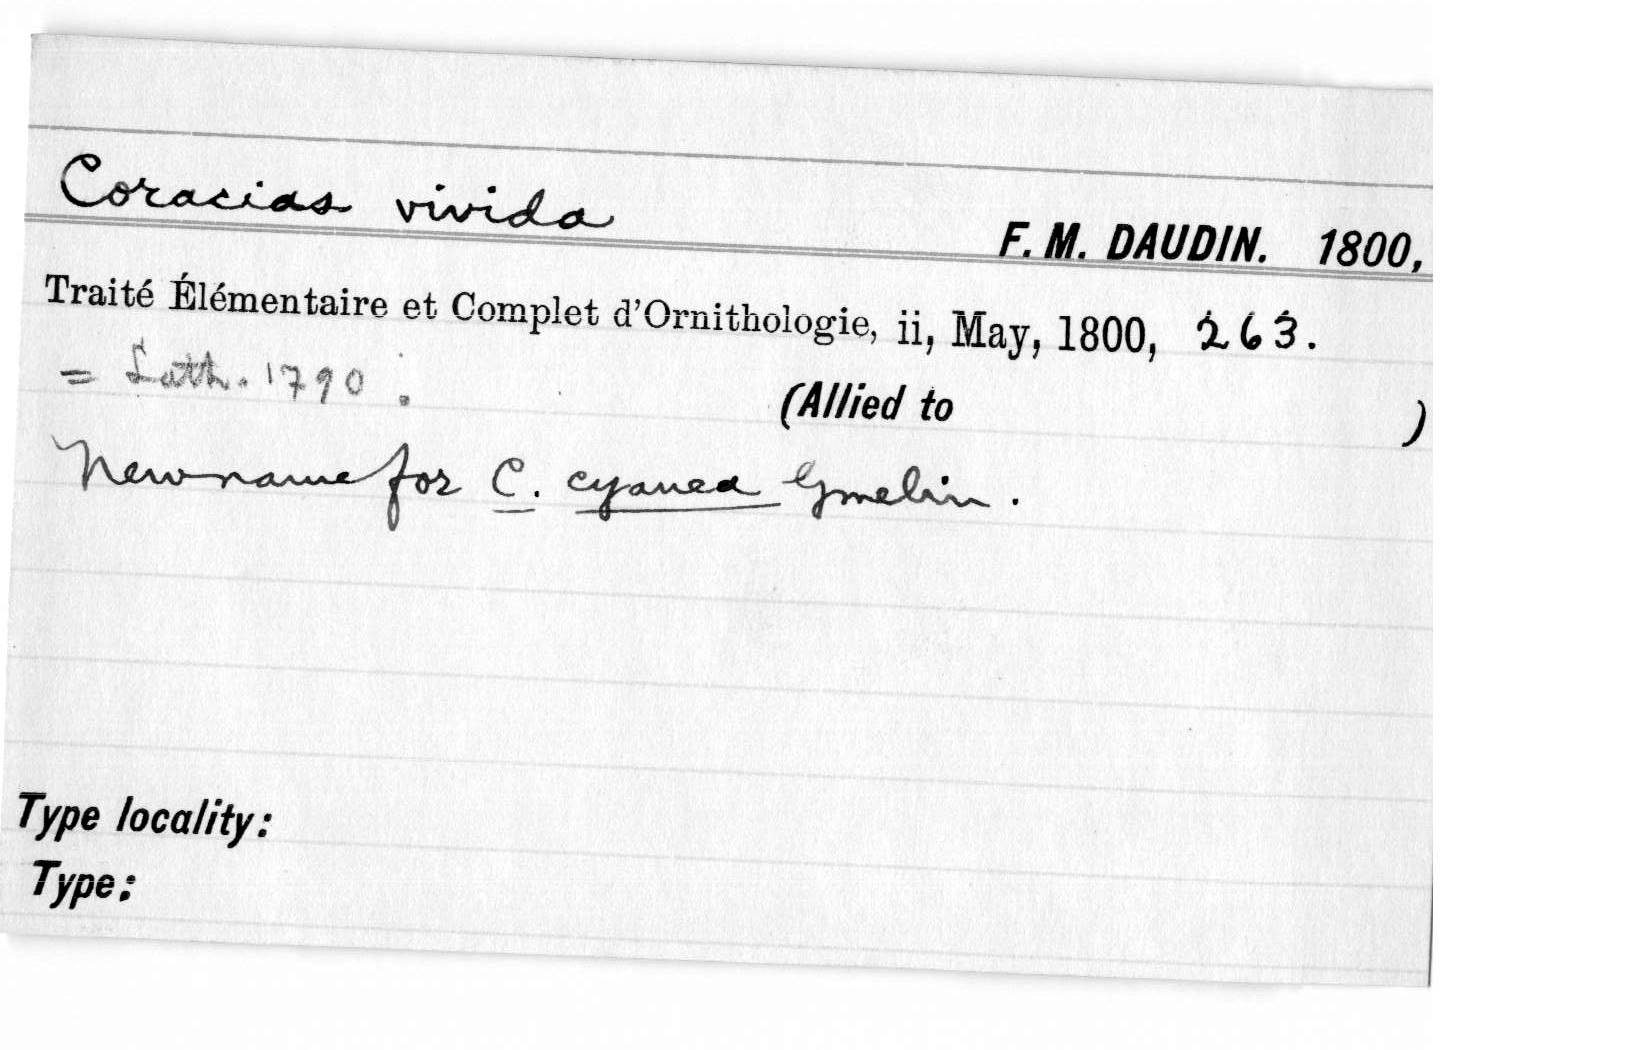 Coracias vivida F. M. DAUDIN. 1800,
Traité Élémentaire et Complet d'Ornithologie, ii, May, 1800, 263.
= Lath. 1790.
(Allied to )
New name for C. cyanea Gmelin.
Type locality:
Type: